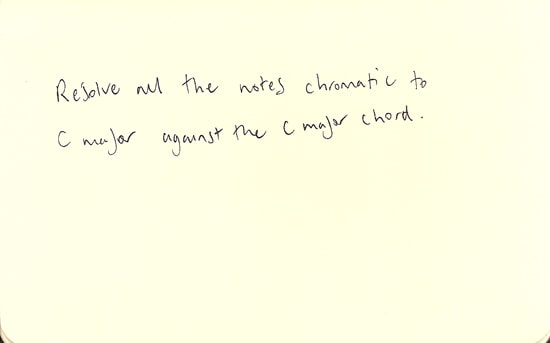 Resolve all the notes chromatic to
C major against the C major chord.